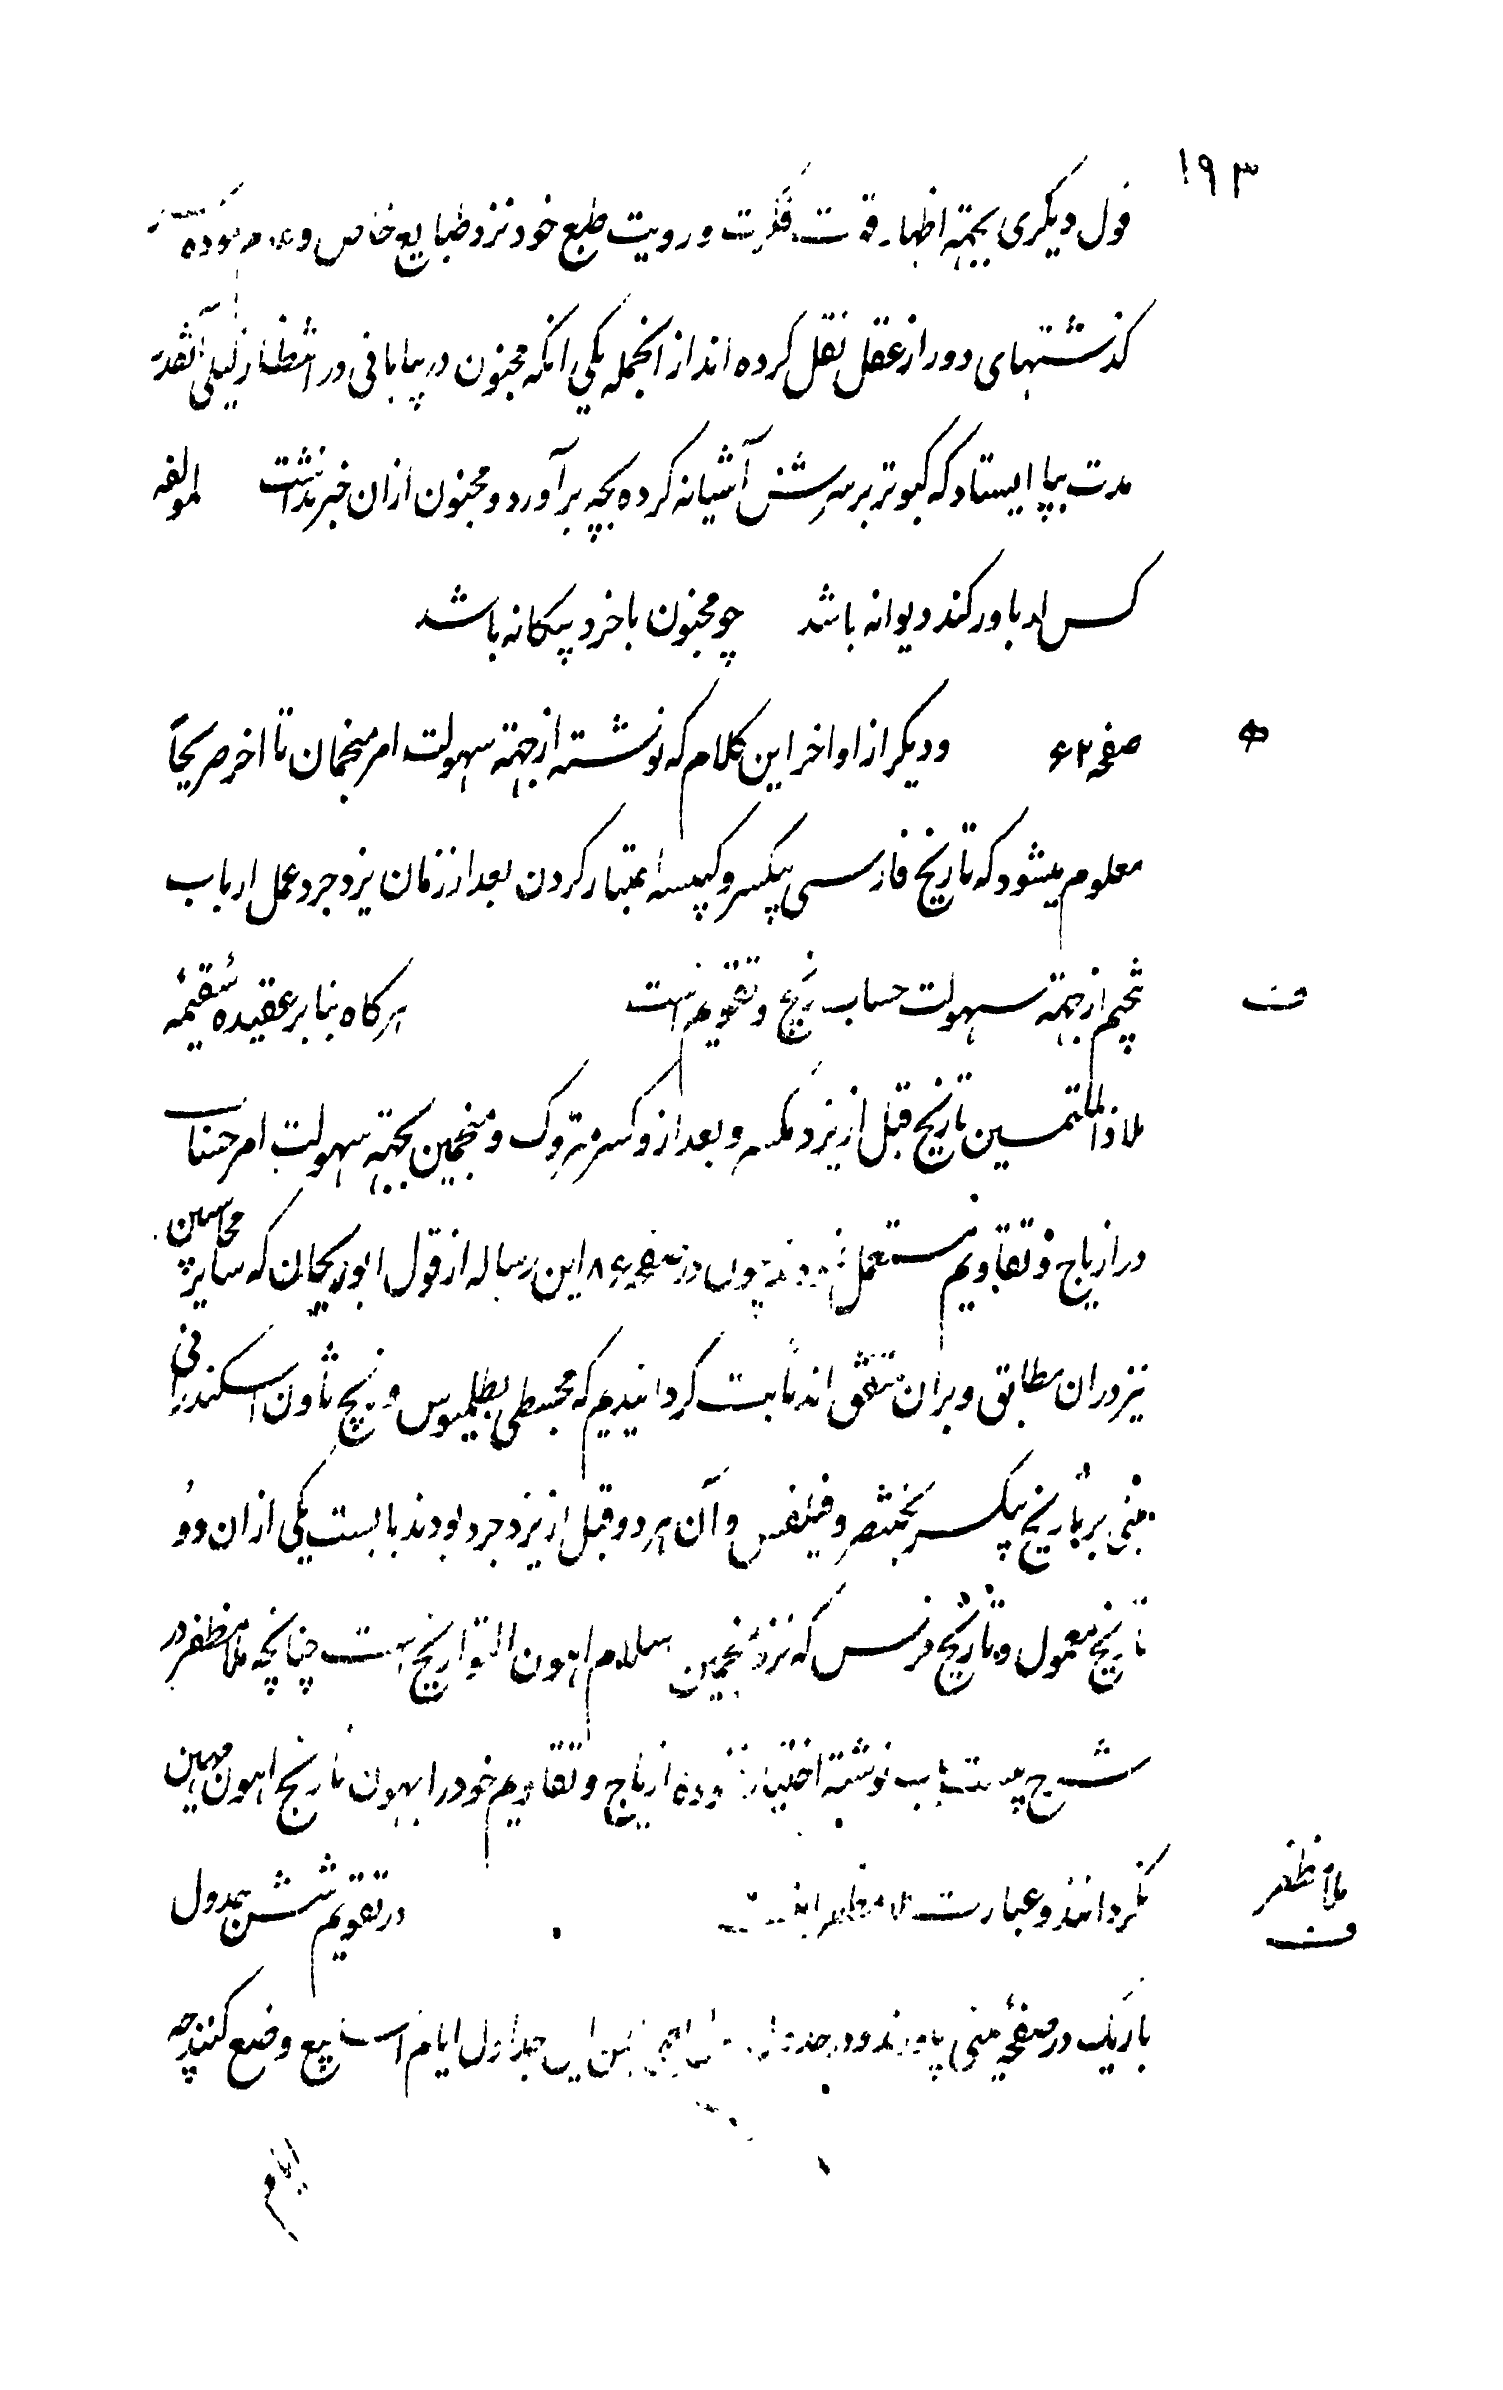 ۱۹۳
قول دیکری بجهته اظهار قوت فکرت و رویت طبع خود نزد طبایع خاص و عام نموده
کذشتهای دور از عقل نقل کرده اند از انجمله یکی انکه مجنون در بیابانی در انتظار لیلی آنقدر
مدت بپا ایستاد که کبوتر بر سرش آشیانه کرده بچه برآورد و مجنون ازان خبر نداشت لمولفه
کس ار باور کند دیوانه باشد چو مجنون با خرد بیکانه باشد
صفحه ۶۲ و دیکر از اواخر این کلام که نوشته از جهته سهولت امر منجمان تا اخر صریحاً
معلوم میشود که تاریخ فارسی پیکسر و کبیسه اعتبار کردن بعد از زمان یزدجرد عمل ارباب
تنجیم از جهته سهولت حساب زیج و تقویم است هرکاه بنا بر عقیده سقیمه
ف
ملاذ الملتمسین تاریخ قبل از یزد مکسر و بعد از و کسر متروک و منجمین بجهته سهولت امر حساب
در ازیاج و تقاویم مستعمل نمودند چون در صفحه ۸۶ این رساله از قول ابوریحان که سایر محاسبین
نیز دران مطابق و بران متفق اند ثابت کردانیدیم که مجسطی بطلمیوس و زیج ثاون اسکندرانی
مبنی بر تاریخ پیکسر بختنصر و فیلفس و آن هر دو قبل از یزدجرد بودند بایست یکی ازان دو
تاریخ معمول و تاریخ فرس که نزد منجمین اسلام اهون التواریخ است چنانچه ملا مظفر در
شرح بیست باب نوشته اختیار نموده ازیاج و تقاویم خود را بهون تاریخ اهون مبین
نکردانند و عبارت ملا مظفر اینست در تقویم شش جدول
ملا مظفر
ف
باریک در صفحه یمنی بیاورند و در جدول ایام اسابیع وضع کنند چه
ایام